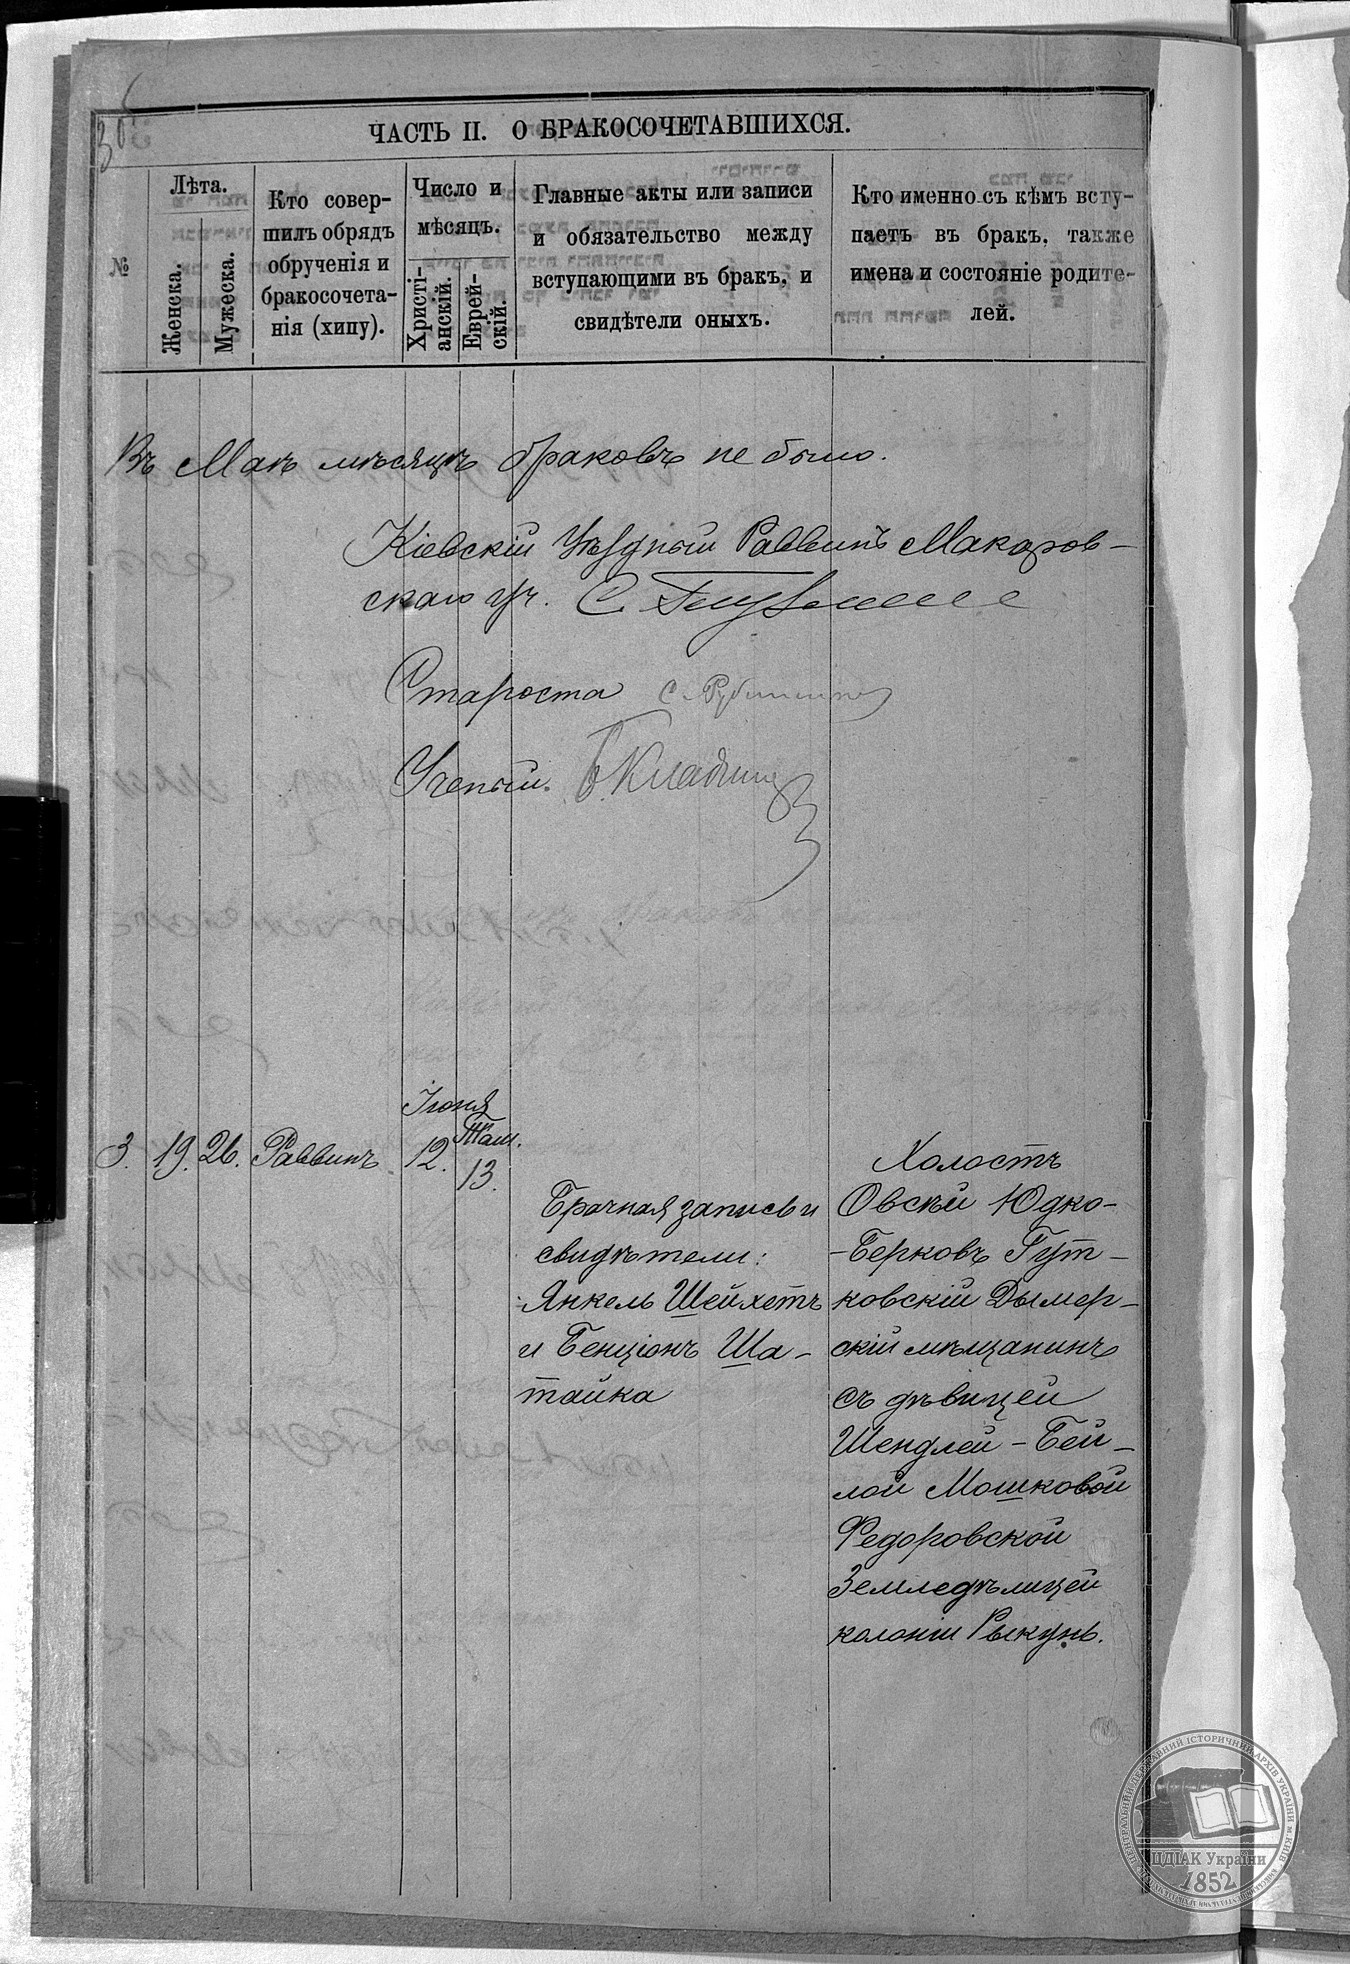 ЧАСТЬ II. О БРАКОСОЧЕТАВШИХСЯ.
№
Лѣта.
Женска.
Мужеска.
Кто совер-
шилъ обрядъ
обрученія и
бракосочета-
нія (хипу).
Число и
мѣсяцъ.
Христі-
анскій.
Еврей-
скій.
Главные акты или записи
и обязательство между
вступающими въ бракъ, и
свидѣтели оныхъ.
Кто именно съ кѣмъ всту-
паетъ въ бракъ, также
имена и состояніе родите-
лей.
Въ Маѣ мѣсяцѣ браковъ не было.
Кіевскій Уѣздный Раввинъ Макаров-
скаго уч. С.
Староста
Ученый
Іюня
3. 19. 26. Раввинъ 12. Там. 13.
Брачная запись и
свидѣтели:
Янкель Шейхетъ
и Бенціонъ Ша-
тайка
Холостъ
Овсѣй Юдко-
-Берковъ Гут-
ковскій Дымер-
скій мѣщанинъ
съ дѣвицей
Шендлей-Бей-
лой Мошковой
Федоровской
Земледѣлицей
колоніи Рыкунь.
ЦДІАК України
1852